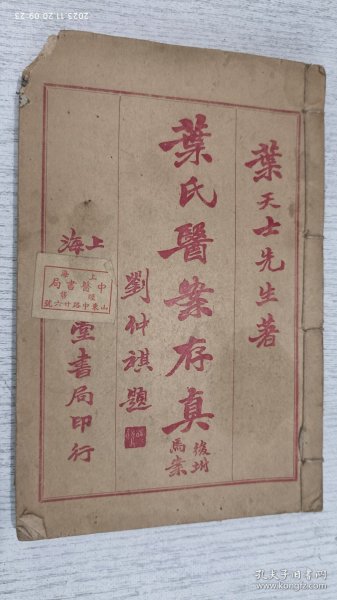 葉天士先生著
葉氏醫案存真
後坿
馬案
劉仲祺題
上海
堂書局印行
上海
中醫書局
經售
山東中路廿六號
2023.11.20 09:23
孔夫子旧书网